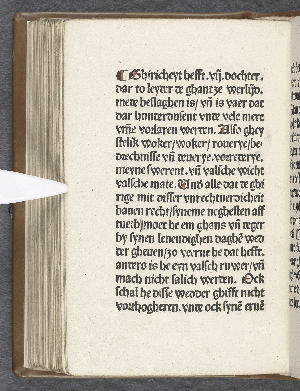 ¶ Ghiricheyt hefft. vij. dochter.
dar to leyder de ghantze werlijd.
mede beslaghen is/ vñ is vaer dat
dar hunterdusent vnde vele mere
vmme vorlaren werten. Also ghey
stlik woker/woker/ rouerye/be-
drechnisse vñ deuerye. vorreterye.
meyne swerent. vñ valsche wicht
valsche mate. Vnd alle dat de ghi
rige mit disser vnrechtuerdicheit
hanen recht/syneme neghesten aff
tuet/moet he em ghans vñ teger
by synen leuendighen daghē wed
der gheuen/so verne he dat hefft.
anders is he eyn valsch ruwer/vñ
mach nicht salich werden. Ock
schal he disse wedder ghifft nicht
vorthogheren. vnde ock synē eruē